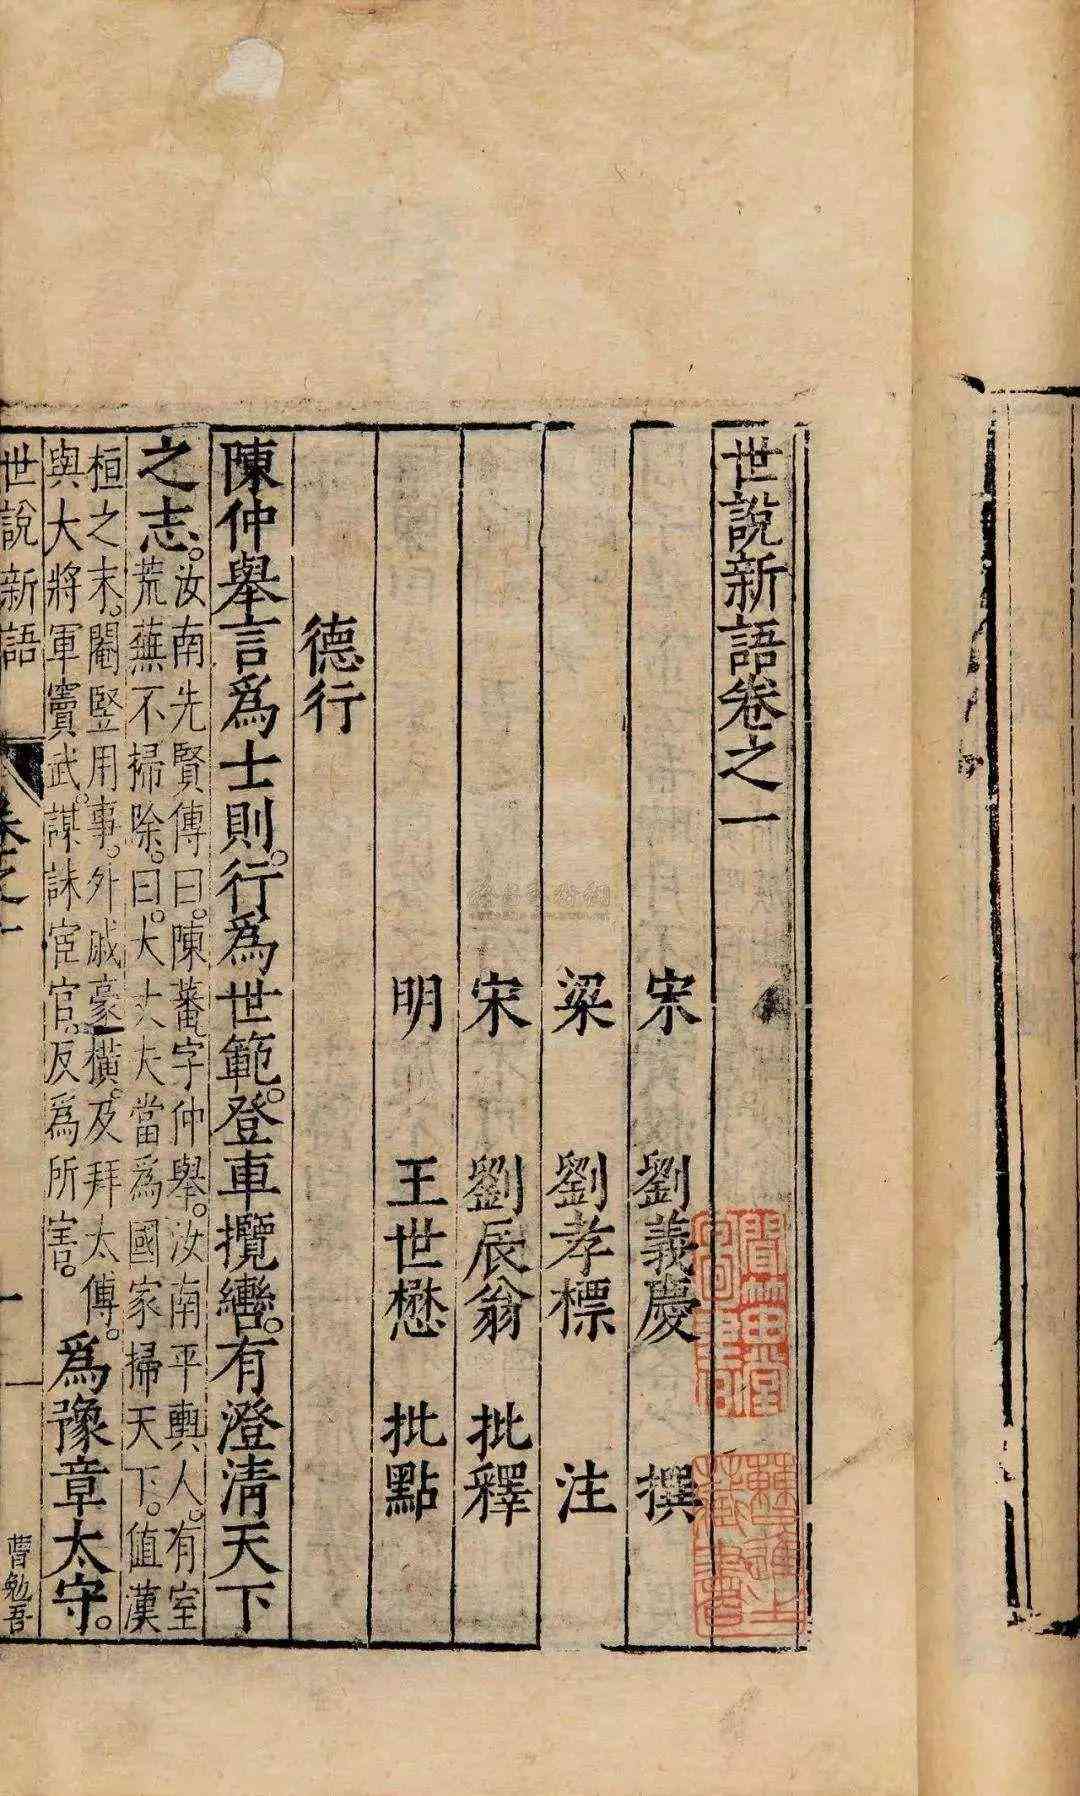 世說新語卷之一
宋 劉義慶 撰
梁 劉孝標 注
宋 劉辰翁 批釋
明 王世懋 批點
德行
陳仲舉言爲士則。行爲世範。登車攬轡。有澄清天下
之志。
汝南先賢傳曰。陳蕃字仲舉。汝南平輿人。有室
荒蕪不掃除。曰。大丈夫當爲國家掃天下。値漢
桓之末。閹豎用事。外戚豪橫。及拜太傅。
與大將軍竇武。謀誅宦官。反爲所害。
爲豫章太守。
世說新語 卷之一 一
曹勉吾